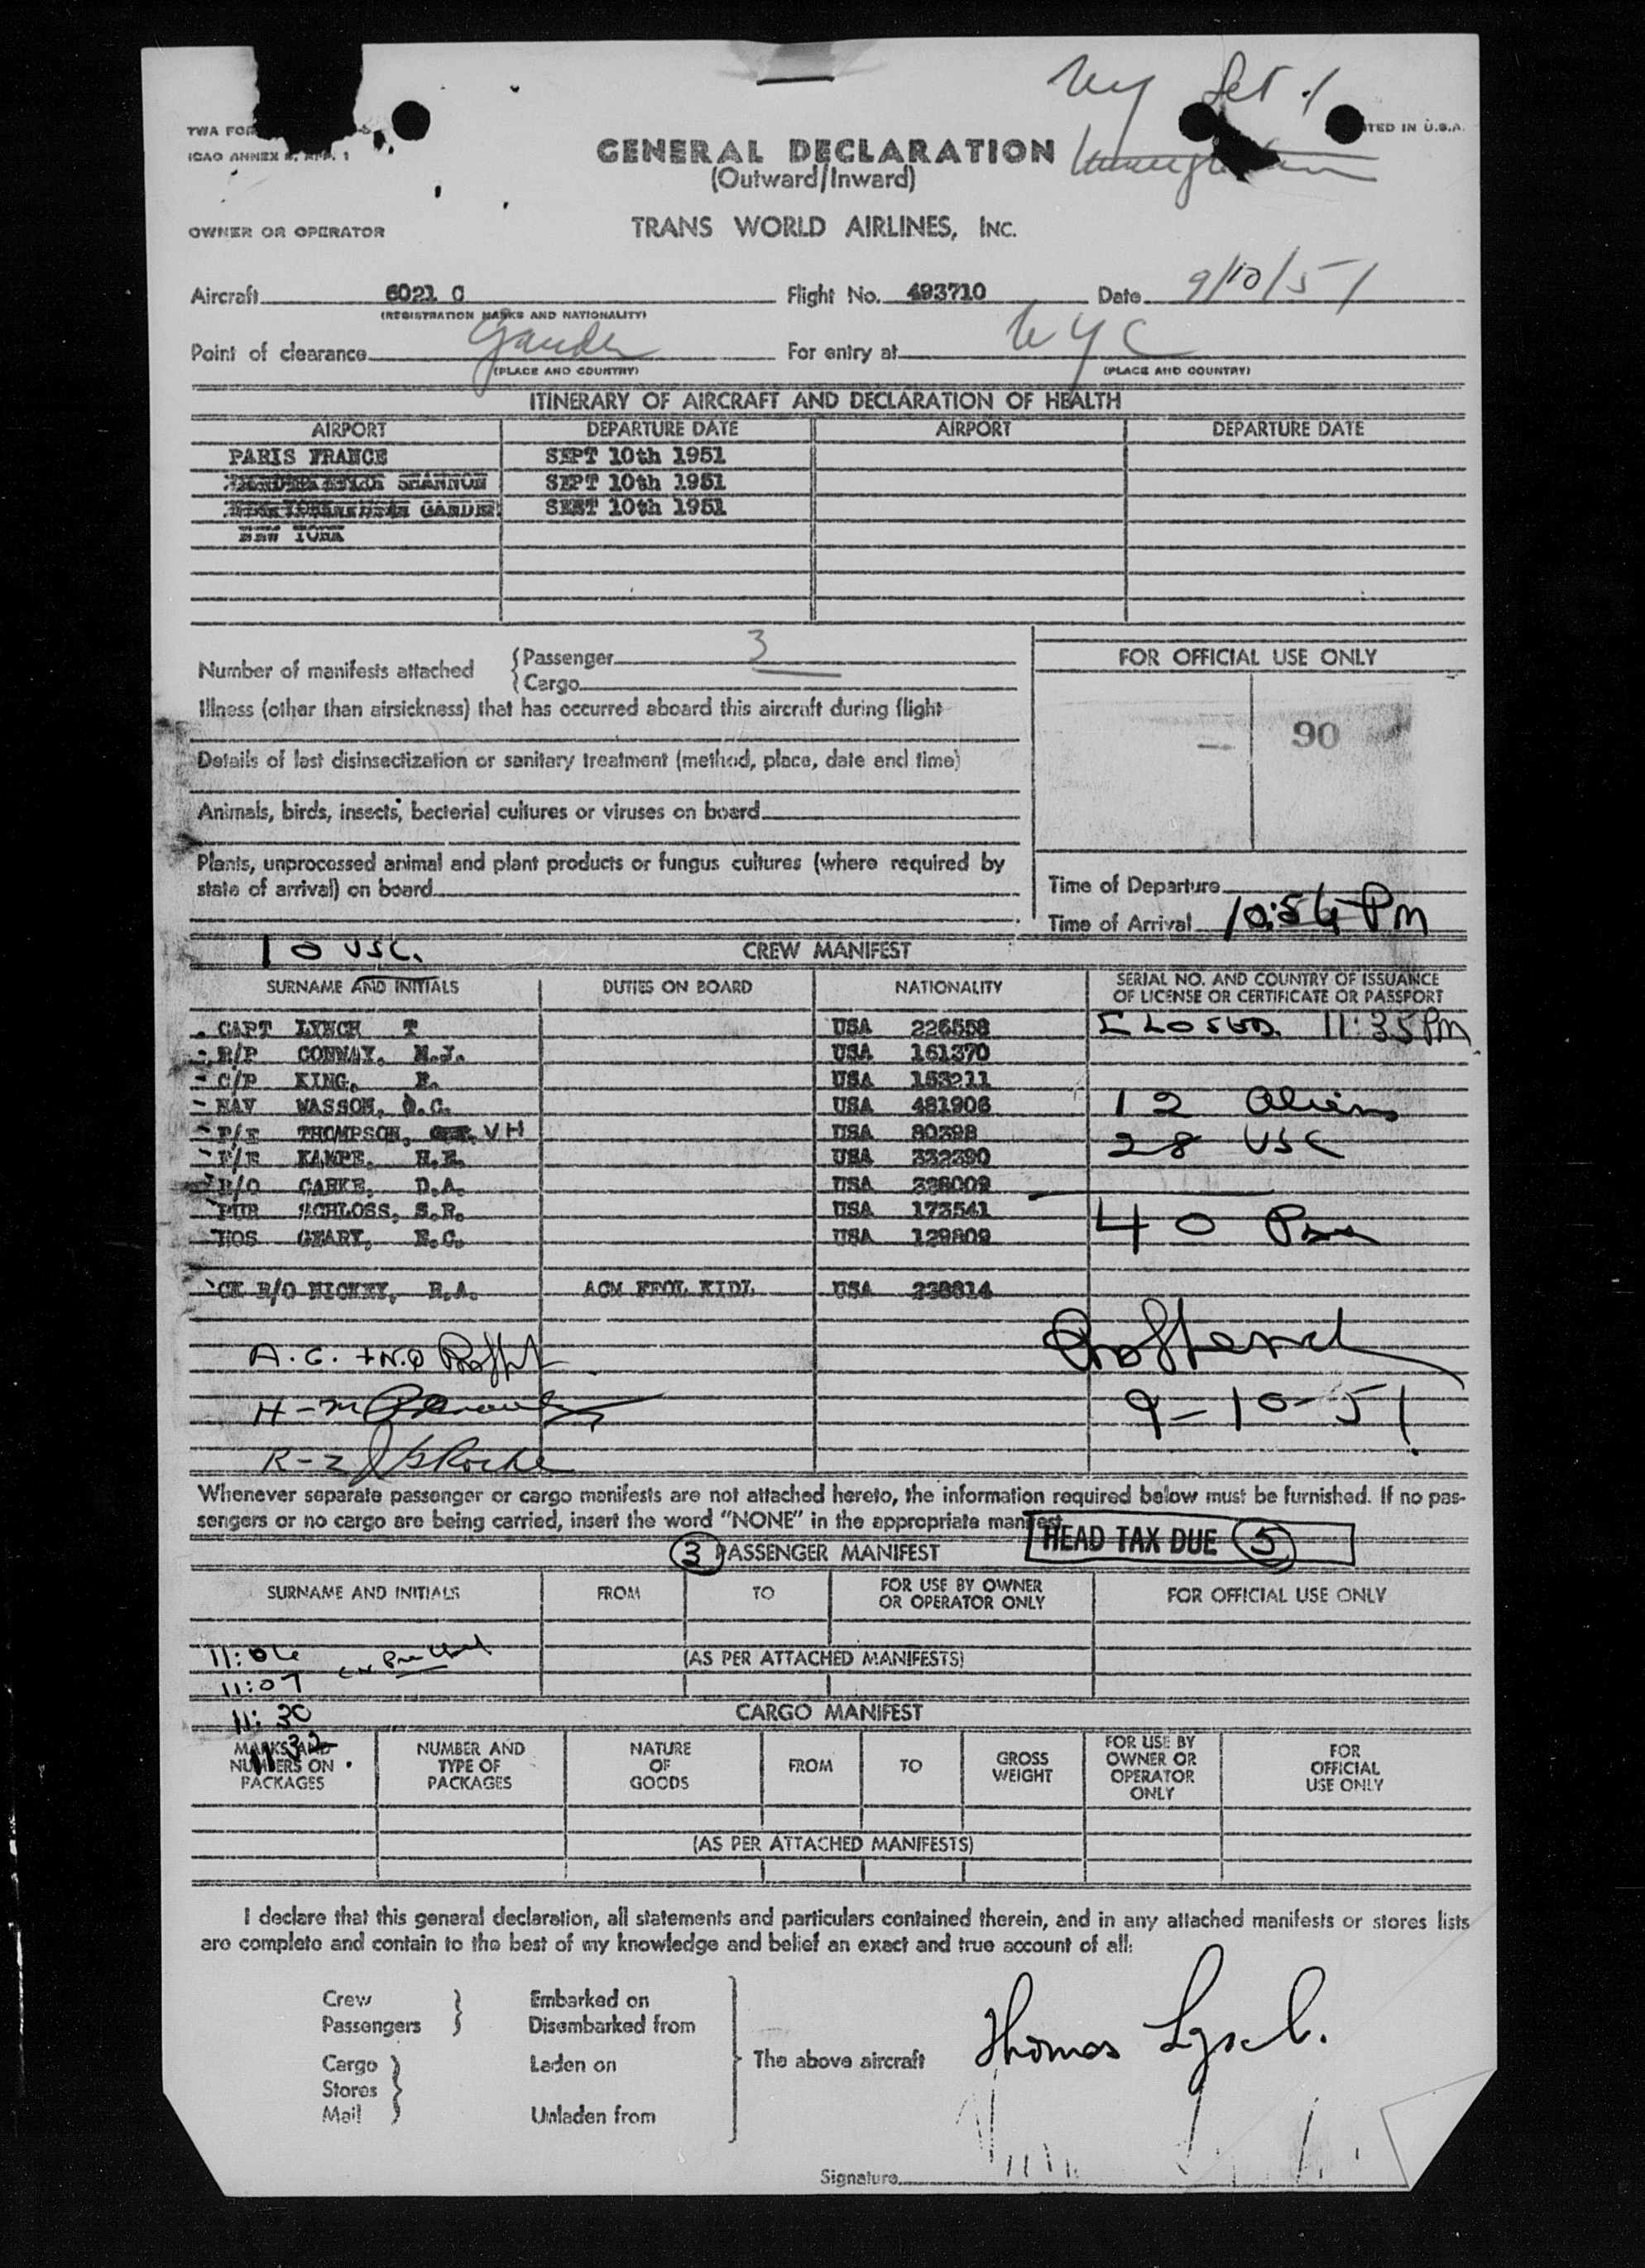 TWA FOR
ICAO ANNEX
TED IN U.S.A.
GENERAL DECLARATION
(Outward/Inward)
OWNER OR OPERATOR
TRANS WORLD AIRLINES, INC.
Aircraft 6021 C Flight No. 493710 Date 9/10/51
(REGISTRATION MARKS AND NATIONALITY)
Point of clearance Gander For entry at NYC
(PLACE AND COUNTRY) (PLACE AND COUNTRY)
ITINERARY OF AIRCRAFT AND DECLARATION OF HEALTH
AIRPORT DEPARTURE DATE AIRPORT DEPARTURE DATE
PARIS FRANCE SEPT 10th 1951
SHANNON SEPT 10th 1951
GANDER SEPT 10th 1951
NEW YORK
Number of manifests attached { Passenger 3
{ Cargo
FOR OFFICIAL USE ONLY
Illness (other than airsickness) that has occurred aboard this aircraft during flight
90
Details of last disinsectization or sanitary treatment (method, place, date and time)
Animals, birds, insects, bacterial cultures or viruses on board
Plants, unprocessed animal and plant products or fungus cultures (where required by
state of arrival) on board
Time of Departure
Time of Arrival 10:54 PM
10 USC. CREW MANIFEST
SURNAME AND INITIALS DUTIES ON BOARD NATIONALITY SERIAL NO. AND COUNTRY OF ISSUANCE
OF LICENSE OR CERTIFICATE OR PASSPORT
CAPT LYNCH T USA 226558 CLOSED 11:35 PM
R/P CONWAY, M.J. USA 161370
C/P KING, F. USA 153211
NAV WASSON, O.C. USA 481906 12 Aliens
F/E THOMPSON, VH USA 80398 28 USC
F/E KAMPE, H.E. USA 332390
R/O CARKE, D.A. USA 328009
PUR SCHLOSS, S.R. USA 173541 40 Pax
HOS GEARY, E.C. USA 129809
CK R/O HICKEY, R.A. ACM USA 238814
A.G. + N.Q
H-M
9-10-51
R-Z
Whenever separate passenger or cargo manifests are not attached hereto, the information required below must be furnished. If no pas-
sengers or no cargo are being carried, insert the word "NONE" in the appropriate manifest
HEAD TAX DUE 5
3 PASSENGER MANIFEST
SURNAME AND INITIALS FROM TO FOR USE BY OWNER
OR OPERATOR ONLY FOR OFFICIAL USE ONLY
11:06
(AS PER ATTACHED MANIFESTS)
11:07
11:30 CARGO MANIFEST
11:32
MARKS AND
NUMBERS ON
PACKAGES NUMBER AND
TYPE OF
PACKAGES NATURE
OF
GOODS FROM TO GROSS
WEIGHT FOR USE BY
OWNER OR
OPERATOR
ONLY FOR
OFFICIAL
USE ONLY
(AS PER ATTACHED MANIFESTS)
I declare that this general declaration, all statements and particulars contained therein, and in any attached manifests or stores lists
are complete and contain to the best of my knowledge and belief an exact and true account of all:
Crew Embarked on
Passengers Disembarked from
Cargo Laden on The above aircraft Thomas Lynch.
Stores
Mail Unladen from
Signature